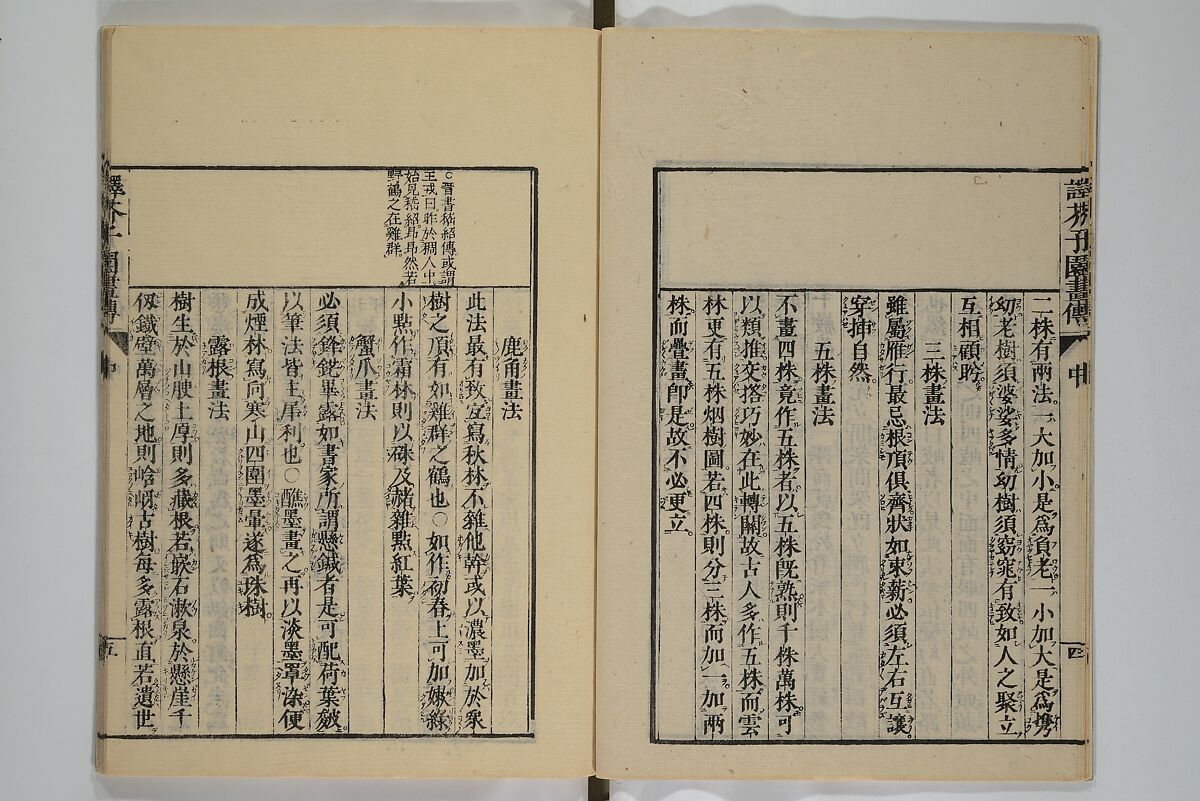 譯芥子園畫傳
中
四
二株有兩法一大加小是爲負老一小加大是爲携
幼老樹須婆娑多情幼樹須窈窕有致如人之聚立
互相顧盻
三株畫法
雖屬雁行最忌根頂俱齊狀如束薪必須左右互讓
穿揷自然
五株畫法
不畫四株竟作五株者以五株旣熟則千株萬株可
以類推交搭巧妙在此轉關故古人多作五株而雲
林更有五株烟樹圖若四株則分三株而加一加兩
株而疊畫卽是故不必更立
○晋書嵇紹傳或謂
王戎曰昨於稠人中
始見嵇紹昂昂然若
野鶴之在雞群
鹿角畫法
此法最有致宜寫秋林不雜他幹或以濃墨加於衆
樹之頂有如雞群之鶴也○如作初春上可加嫩綠
小點作霜林則以硃及赭雜點紅葉
蟹爪畫法
必須鋒鋩畢露如書家所謂懸鍼者是可配荷葉皴
以筆法皆主犀利也○醮墨畫之再以淡墨罩染便
成煙林寫向寒山四圍墨暈遂爲珠樹
露根畫法
樹生於山腴土厚則多藏根若嵌石漱泉於懸崖千
仭鐵壁萬層之地則峆岈古樹每多露根直若遺世
中
五